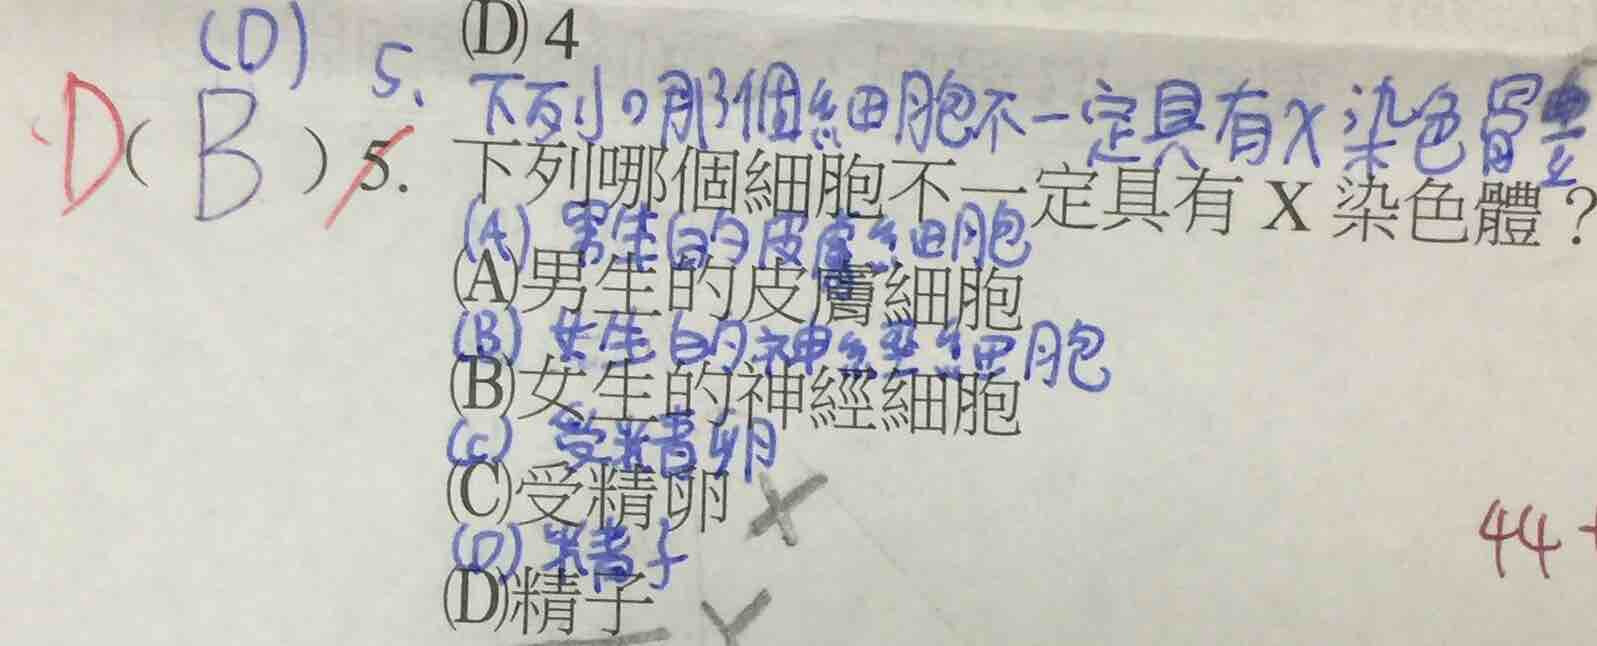 (D) 4
(D) 5、下列哪個細胞不一定具有X染色體
D( B ) 5. 下列哪個細胞不一定具有 X 染色體？
(A) 男生的皮膚細胞
(A)男生的皮膚細胞
(B) 女生的神經細胞
(B)女生的神經細胞
(C) 受精卵
(C)受精卵
(D) 精子
(D)精子
44